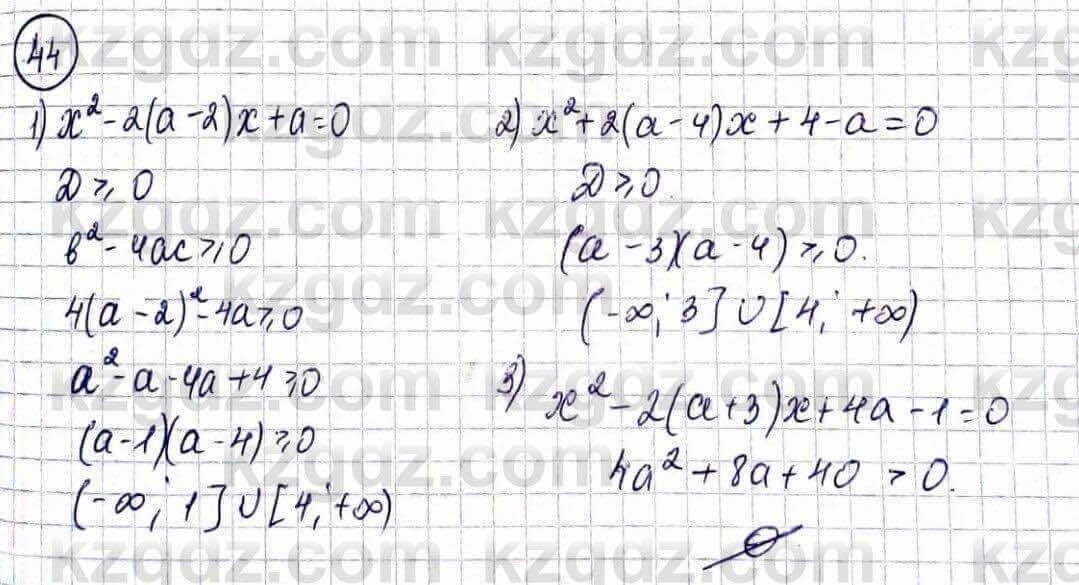 44
1) x² - 2(a - 2)x + a = 0
D ⩾ 0
b² - 4ac ⩾ 0
4(a - 2)² - 4a ⩾ 0
a² - a - 4a + 4 ⩾ 0
(a - 1)(a - 4) ⩾ 0
(-∞; 1] ∪ [4; +∞)
2) x² + 2(a - 4)x + 4 - a = 0
D ⩾ 0.
(a - 3)(a - 4) ⩾ 0.
(-∞; 3] ∪ [4; +∞)
3) x² - 2(a + 3)x + 4a - 1 = 0
4a² + 8a + 40 > 0.
∅
kzgdz.com